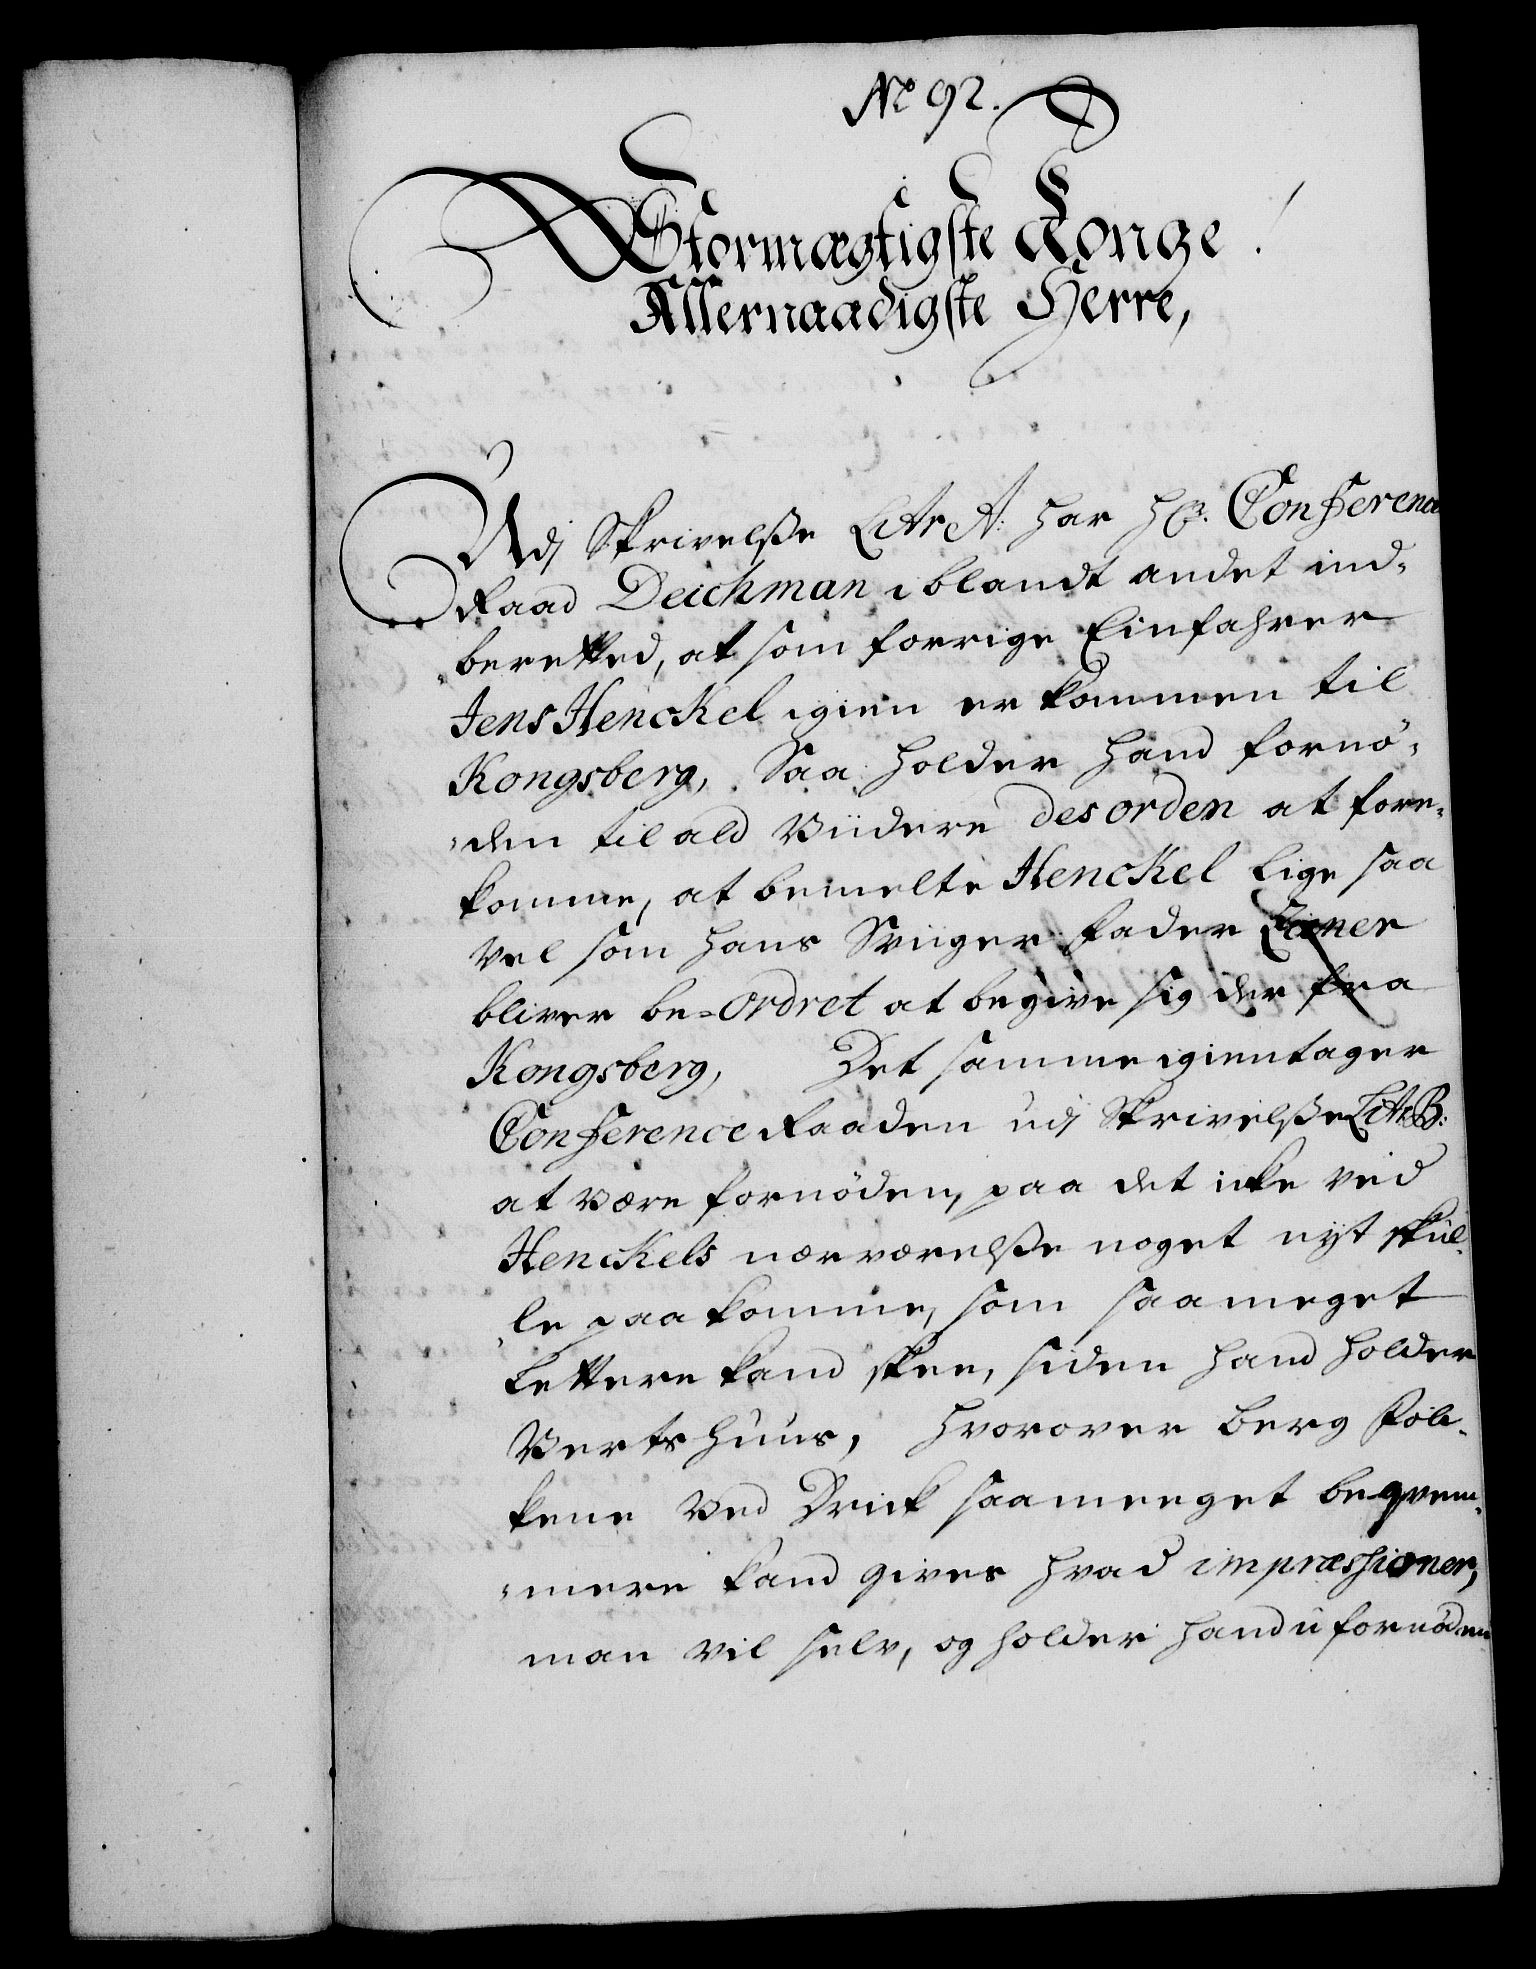 No 92.
Stormægtigste Konge!
Allernaadigste Herre,
Udj Skrivelsse LitrA: har Hr. Conference
Raad Deichman iblandt andet ind-
beretted, at som forrige Einfahrer
Jens Henckel igien er kommen til
Kongsberg, Saa holder hand fornö-
den til ald Viidere desorden at fore-
komme, at bemelte Henckel lige saa
vel som hans Sviger fader
bliver be-Ordret at begive sig der fra
Kongsberg, Det samme igientager
Conference Raaden udj Skrivelsse LitrB:
at være fornöden, paa det icke ved
Henckels nærværelsse noget nyt skul-
le paakomme, som saameget
lettere kand skee, siden hand holder
Vertshuus, hvorover berg Fol-
kene ved Drick saameeget beqvem-
mere kand gives hvad impræssioner,
man vil selv, og holder hand ufornöden